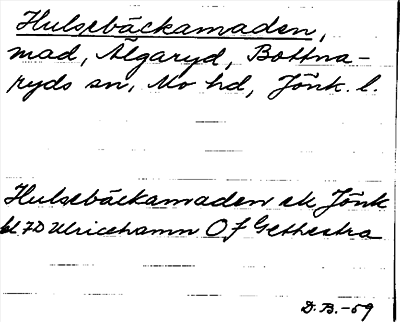 Hulsebäckamaden,
mad, Älgaryd, Bottna-
ryds sn, Mo hd, Jönk. l.
Hulsebäckamaden ek Jönk
bl 7D Ulricehamn Of Gethestra
D.B.-59